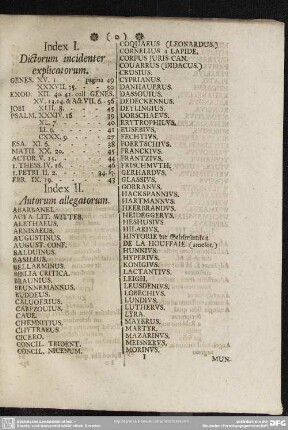 (o)
Index I.
Dictorum incidenter
explicatorum.
GENES. XV. 1. pagina 49
XXXVII. 35. 50
EXOD. XII. 40. 41. coll. GENES.
XV. 13. 14. & Act. VII. 6. 56
JOBI XIII. 8. 45
PSALM. XXXIV. 18 39
XL. 7. 40
LI. 9. 41
CXXX. 9. 27
ESA. XI. 6. 38
MATTH. XX. 20. 45
ACTOR. V. 11. 44
1. THESS. IV. 16. 46
1. PETRI II. 2. 34. sq.
EBR. IX. 19. 43
Index II.
Autorum allegatorum.
ABARBANEL.
ACTA LIT. WITTEB.
ALETHAEUS.
ARNISAEUS.
AUGUSTINUS.
AUGUST. CONF.
BALDUINUS.
BASILIUS.
BELLARMINUS.
BIBLIA CRITICA.
BRAUNIUS.
BRUNNEMANNUS.
BUDDEUS.
CALOVIUS.
CARPZOVIUS.
CAVE.
CHEMNITIUS.
CHYTRAEUS.
CICERO.
CONCIL. TRIDENT.
CONCIL. NICENUM.
COQUAEUS (LEONARDUS.)
CORNELIUS a LAPIDE.
CORPUS JURIS CAN.
COUARRUS (DIDACUS.)
CRUSIUS.
CYPRIANUS.
DANHAUERUS.
DASSOUIUS.
DEDECKENNUS.
DEYLINGIUS.
DORSCHAEUS.
ERYTROPHILUS.
EUSEBIUS.
FECHTIUS.
FOERTSCHIUS.
FRANCKIUS.
FRANTZIUS.
FRISCHMUTH.
GERHARDUS.
GLASSIUS.
GORRANUS.
HACKSPANNIUS.
HARTMANNUS.
HEERBRANDUS.
HEIDEGGERUS.
HESHUSIUS.
HILARIUS.
HISTORIE der Gelehrsamkeit
DE LA HOUFFAIE
HUNNIUS.
HYPERIUS.
KONIGIUS.
LACTANTIUS.
LEIGH.
LEUSDENIUS.
LOBECHIUS.
LUNDIUS.
LUTHERUS.
LYRA.
MAYERUS.
MARTYR.
MAZARINUS.
MEISNERUS.
MORINUS.
I MUN.
DFG